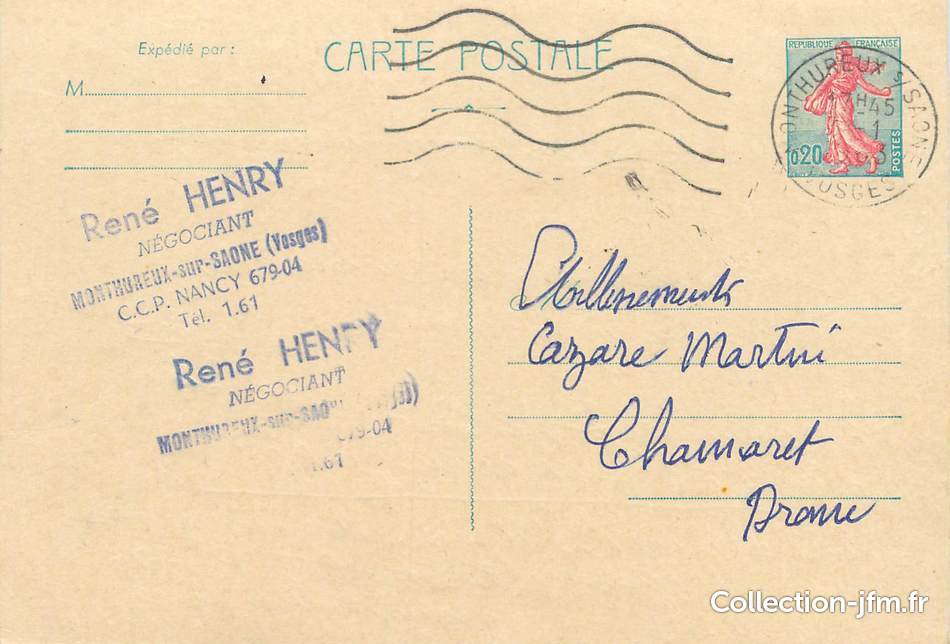 Expédié par :
CARTE POSTALE
M
REPUBLIQUE FRANÇAISE
0,20
POSTES
MONTHUREUX S/SAONE
17H45
-1
VOSGES
René HENRY
NÉGOCIANT
MONTHUREUX-sur-SAONE (Vosges)
C.C.P. NANCY 679-04
Tél. 1.61
René HENRY
NÉGOCIANT
MONTHUREUX-sur-SAONE
679-04
1.61
Cazare Martini
Chamaret
Drome
Collection-jfm.fr